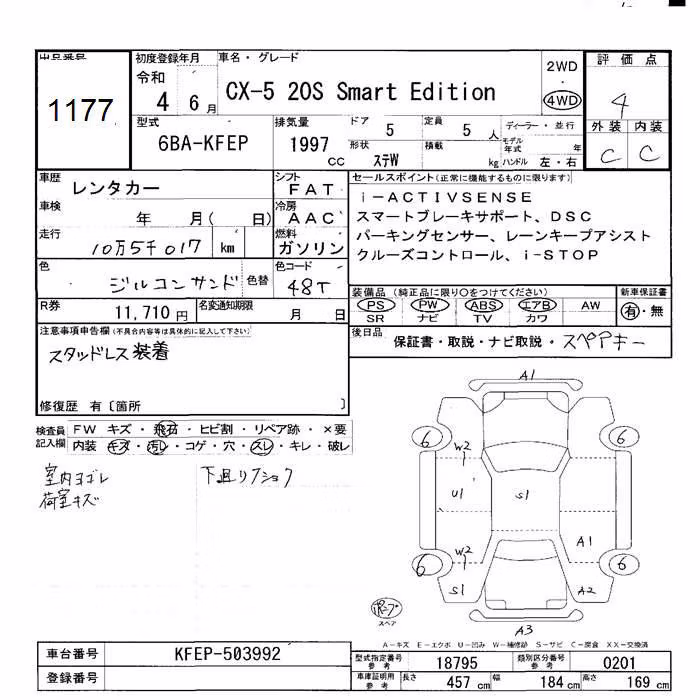 出品番号
1177
初度登録年月
令和
4 6 月
車名・グレード
CX-5 20S Smart Edition
2WD
・
4WD
評価点
4
外装 内装
C C
型式
6BA-KFEP
排気量
1997
cc
ドア
5
定員
5 人
ディーラー・並行
形状
ステW
積載
kg
モデル年式
年
ハンドル 左・右
車歴
レンタカー
車検
年 月( 日)
走行
10万5千017 km
色
ジルコンサンド
色替
シフト
FAT
冷房
AAC
燃料
ガソリン
色コード
48T
セールスポイント(正常に機能するものに限ります)
i-ACTIVSENSE
スマートブレーキサポート、DSC
パーキングセンサー、レーンキープアシスト
クルーズコントロール、i-STOP
装備品(純正品に限り○をつけてください)
PS PW ABS エアB AW
SR ナビ TV カワ
新車保証書
有・無
R券
11,710 円
名変通知期限
月 日
後日品
保証書・取説・ナビ取説・スペアキー
注意事項申告欄(不具合内容等は具体的に記入して下さい)
スタッドレス装着
修復歴 有〔箇所 〕
検査員記入欄
FW キズ・飛石・ヒビ割・リペア跡・×要
内装 キズ・汚レ・コゲ・穴・スレ・キレ・破レ
室内ヨゴレ
荷室キズ
下廻りブショク
A1
6 6
W2
U1 S1
A1
W2
6 6
S1 A2
スペア
A3
A-キズ E-エクボ U-凹み W-補修跡 S-サビ C-腐食 XX-交換済
車台番号 KFEP-503992
登録番号
型式指定番号参考 18795 類別区分番号参考 0201
車庫証明用参考 長さ 457 cm 幅 184 cm 高さ 169 cm